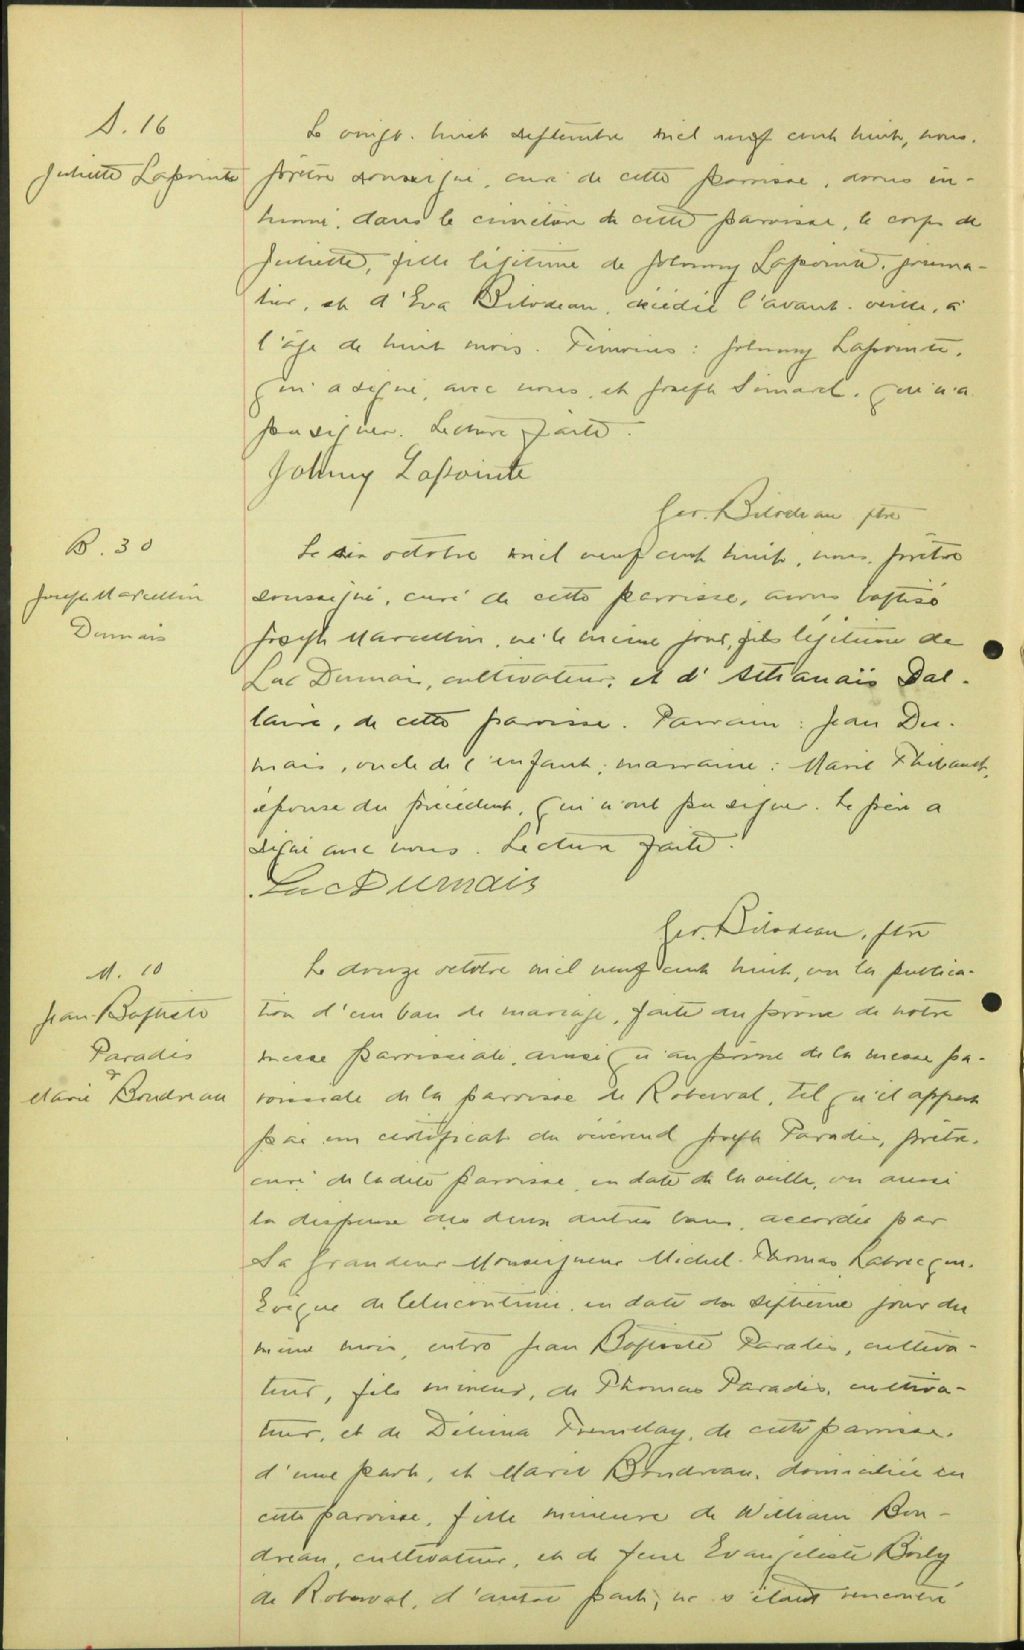 S. 16
Juliette Lapointe
Le vingt-huit septembre mil neuf cent huit, nous,
prêtre soussigné, curé de cette paroisse, avons in-
humé, dans le cimetière de cette paroisse, le corps de
Juliette, fille légitime de Johnny Lapointe, journa-
lier, et d'Eva Bilodeau, décédée l'avant-veille, à
l'âge de huit mois. Témoins: Johnny Lapointe,
qui a signé, avec nous, et Joseph Simard, qui n'a
pu signer. Lecture faite.
Johnny Lapointe
Geo. Bilodeau ptre
B. 30
Joseph Marcellin
Dumais
Le six octobre mil neuf cent huit, nous, prêtre
soussigné, curé de cette paroisse, avons baptisé
Joseph Marcellin, né le même jour, fils légitime de
Luc Dumais, cultivateur, et d'Athanaïs Dal-
laire, de cette paroisse. Parrain: Jean Du-
mais, oncle de l'enfant; marraine: Marie Thibault,
épouse du précédent, qui n'ont pu signer. Le père a
signé avec nous. Lecture faite.
Luc Dumais
Geo. Bilodeau, ptre
M. 10
Jean-Baptiste
Paradis
&
Marie Boudreau
Le douze octobre mil neuf cent huit, vu la publica-
tion d'un ban de mariage, faite au prône de notre
messe paroissiale, ainsi qu'au prône de la messe pa-
roissiale de la paroisse de Roberval, tel qu'il appert
par un certificat du révérend Joseph Paradis, prêtre,
curé de ladite paroisse, en date de la veille, vu aussi
la dispense des deux autres bans, accordée par
Sa Grandeur Monseigneur Michel-Thomas Labrecque,
Evêque de Chicoutimi, en date du septième jour du
même mois, entre Jean Baptiste Paradis, cultiva-
teur, fils mineur, de Thomas Paradis, cultiva-
teur, et de Délima Tremblay, de cette paroisse,
d'une part, et Marie Boudreau, domiciliée en
cette paroisse, fille mineure de William Bou-
dreau, cultivateur, et de feue Evangéliste Boily
de Roberval, d'autre part; ne s'étant rencontré